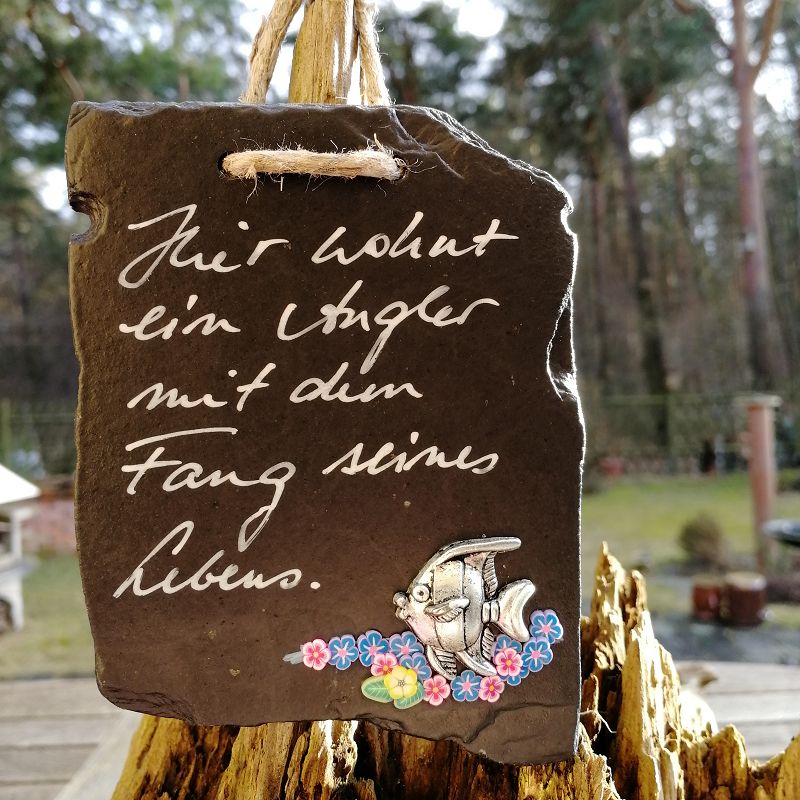 Hier wohnt
ein Angler
mit dem
Fang seines
Lebens.